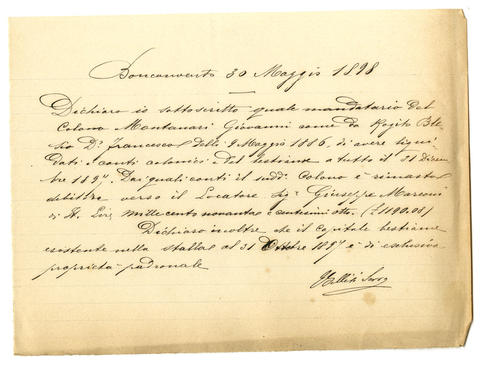 Bonconvento 30 Maggio 1898
Dichiaro io sottoscritto quale mandatario del
Colono Montanari Giovanni come da Rogito
Dr. Francesco delli 9 Maggio 1886, di avere liqui
dati i conti colonici e del bestiame a tutto il 31 Dicem
bre 1897. Dai quali conti il sudd. Colono è rimasto
debitore verso il Locatore Sig. Giuseppe Marconi
di It. Lire Mille cento novanta e centesimi otto. (£1190.08)
Dichiaro inoltre che il capitale bestiame
esistente nella stalla al 31 1897 è di esclusiva
proprietà padronale